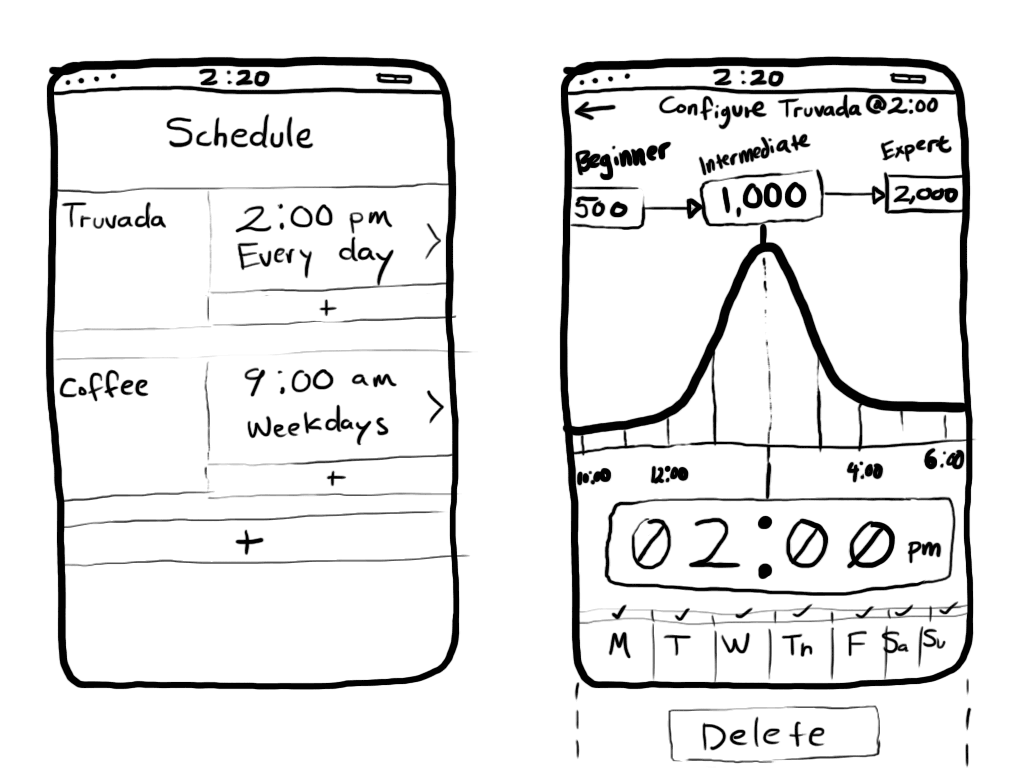 2:20
Schedule
Truvada
2:00 pm
Every day
+
Coffee
9:00 am
Weekdays
+
+
2:20
Configure Truvada @ 2:00
Beginner
Intermediate
Expert
500
1,000
2,000
10:00
12:00
4:00
6:00
02:00 pm
M T W Th F Sa Su
Delete